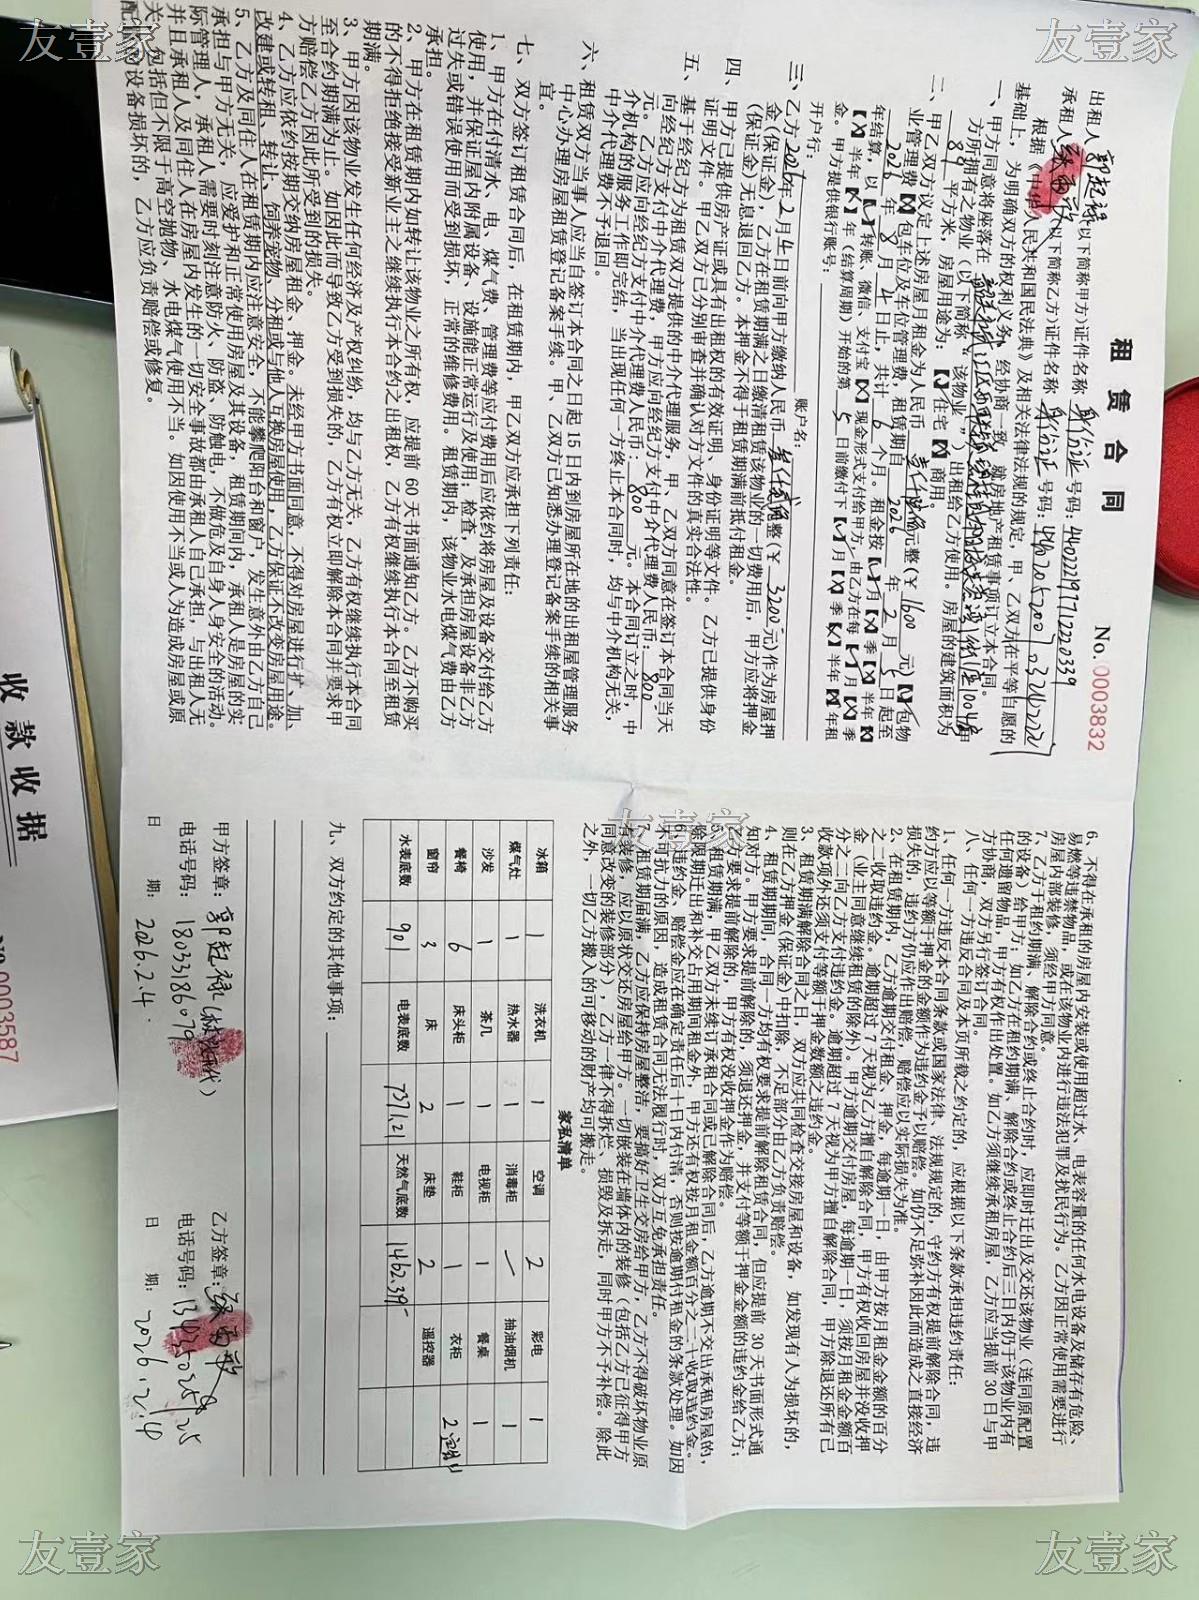 友壹家
租赁合同
No. 0003832
出租人 郭起禄 以下简称甲方)证件名称 身份证 号码: 440222197112220339
承租人 以下简称乙方)证件名称 身份证 号码:
根据《中华人民共和国民法典》及相关法律法规的规定,甲、乙双方在平等自愿的
基础上,为明确双方的权利义务,经协商一致,就房地产租赁事项订立本合同。
一、甲方同意将座落在
方所拥有之物业(以下简称“该物业”)出租给乙方使用。房屋的建筑面积为
平方米,房屋用途为:【】住宅【】商用。
二、甲乙双方议定上述房屋月租金为人民币 壹仟陆佰 元整(¥ 1600 元)【】包物
业管理费【】包车位及车位管理费,租赁期自 2026 年 2 月 5 日起至
2026 年 8 月 4 日止,共计 6 个月。租金按【】月【】季【】半年
年结算,以【】转账、微信、支付宝【】现金形式支付给甲方,由乙方在每【】月【】季
【】半年【】年(结算周期)开始的第 5 日前缴付下【】月【】季【】半年【】年租
金。甲方提供银行账号:
开户行: 账户名:
三、乙方 2026 年 2 月 4 日前向甲方缴纳人民币 叁仟贰佰 整(¥ 3200 元)作为房屋押
金(保证金),乙方在租赁期满之日缴清租赁该物业的一切费用后,甲方应将押金
(保证金)无息退回乙方。本押金不得于租赁期满前抵付租金。
四、甲方已提供房产证或具有出租权的有效证明、身份证明等文件。乙方已提供身份
证明文件。甲乙双方已分别审查并确认对方文件的真实合法性。
五、基于经纪方为租赁双方提供的中介代理服务,甲、乙双方同意在签订本合同当天
向经纪方支付中介代理费,甲方应向经纪方支付中介代理费人民币: 800
元。乙方应向经纪方支付中介代理费人民币: 800 元。本合同订立之时,中
介机构的服务工作即完结,当出现任何一方终止本合同时,均与中介机构无关,
中介代理费不予退回。
六、租赁双方当事人应当自签订本合同之日起 15 日内到房屋所在地的出租屋管理服务
中心办理房屋租赁登记备案手续。甲、乙双方已知悉办理登记备案手续的相关事
宜。
七、双方签订租赁合同后,在租赁期内,甲乙双方应承担下列责任:
1、甲方在付清水、电、煤气费、管理费等应付费用后应依约将房屋及设备交付给乙方
使用,并保证室内附属设备、设施能正常运行及使用;检查,及承担房屋设备非乙方
过失或错误使用而受到损坏,正常的维修费用。租赁期内,该物业水电煤气费由乙方
承担。
2、甲方在租赁期内如转让该物业之所有权,应提前 60 天书面通知乙方。乙方不购买
的不得拒绝接受新业主之继续执行本合约之出租权,乙方有权继续执行本合同至租赁
期满。
3、甲方因该物业发生任何经济及产权纠纷,均与乙方无关,乙方有权继续执行本合同
至合约期满为止。如因此而导致乙方受到损失的,乙方有权立即解除本合同并要求甲
方赔偿乙方因此所受到的损失。
4、乙方应依约按期交纳房屋租金、押金。未经甲方书面同意,不得对房屋进行扩、加、
改建或转租、转让、饲养宠物、分租或与他人互换房屋使用,乙方保证不改变房屋用途。
5、乙方及同住人在租赁期内应注意安全,不能攀爬阳台和窗户,发生意外由乙方自己
承担与甲方无关,应爱护和正常使用房屋及其设备,租赁期间内,承租人是房屋的实
际管理人,承租人需要时刻注意防火、防盗、防触电,不做危及自身人身安全的活动。
并且承租人及同住人在房屋内发生的一切安全事故都由承租人自己承担,与出租人无
关,包括但不限于高空抛物、水电煤气使用不当。如因使用不当或人为造成房屋或原
配 的设备损坏的,乙方应负责赔偿或修复。
6、不得在承租的房屋内安装或使用超过水、电表容量的任何水电设备及储存有危险、
易燃等违禁物品,或在该物业内进行违法犯罪及扰民行为。乙方因正常使用需要进行
房屋内部装修,须经甲方同意。
7、乙方于租约期满、解除合约或终止合约时,应即时迁出及交还该物业(连同原配置
的设备)给甲方;如乙方在租约期满、解除合约或终止合约后三日内仍于该物业内有
任何遗留物品,甲方有权作出处置。如乙方须继续承租房屋,乙方应当提前 30 日与甲
方协商,双方另行签订合同。
八、任何一方违反合同及本页所载之约定的,应根据以下条款承担违约责任:
1、任何一方违反本合同条款或国家法律、法规规定的,守约方有权提前解除合同,违
约方应以等额于押金的金额作为违约金予以赔偿。如仍不足弥补因此而造成之直接经济
损失的,违约方仍应作出赔偿,赔偿应以实际损失为准。
2、在租赁期内,乙方逾期交付租金、押金,每逾期一日,由甲方按月租金金额的百分
之二收取违约金。逾期超过 7 天视为乙方擅自解除合同,甲方有权收回房屋并没收押
金(业主同意继续租赁的除外)。甲方逾期交付房屋,每逾期一日,须按月租金金额百
分之二向乙方支付违约金。逾期超过 7 天视为甲方擅自解除合同,甲方除退还所有已
收款项外还须支付等额于押金数额之违约金。
3、租赁期满解除合同之日,双方应共同检查交接房屋和设备,如发现有人为损坏的,
则在乙方押金(保证金)中扣除,不足部分由乙方负责赔偿。
4、租赁期期间,合同一方均有权要求提前解除租赁合同,但应提前 30 天书面形式通
知对方。甲方要求提前解除的,须退还押金,并支付等额于押金金额的违约金给乙方;
乙方要求提前解除的,甲方有权没收押金作为赔偿。
5、租赁期满,甲乙双方未续订承租合同或已解除合同后,乙方逾期不交出承租房屋的,
除限期迁出和补交占用期间租金外,甲方还有权按月租金额百分之二十收取违约金。
6、违约金、赔偿金应在确定责任后十日内付清,否则按逾期付租金的条款处理。如因
不可抗力的原因,造成租赁合同无法履行时,双方互免承担责任。
7、租赁期届满,乙方应保持房屋整洁,要搞好卫生交房给甲方,乙方不得破坏物业原
有装修,应以原状交还房屋给甲方。一切嵌装在墙体内的装修(包括乙方已征得甲方
同意改变的装修部分),乙方一律不得拆烂、损毁及拆走,同时甲方不予补偿。除此
之外,一切乙方搬入的可移动的财产均可搬走。
家私清单
冰箱 1 洗衣机 1 空调 2 彩电 1
煤气灶 1 热水器 1 消毒柜 一 抽油烟机 1
沙发 1 茶几 1 电视柜 1 餐桌 1
餐椅 6 床头柜 1 鞋柜 1 衣柜
窗帘 3 床 2 床垫 2 遥控器
水表底数 901 电表底数 7371.21 天然气底数 1462.395
九、双方约定的其他事项:
甲方签章: 郭起禄 乙方签章:
电话号码: 18033186079 电话号码:
日 期: 2026.2.4. 日 期: 2026.2.4
收款收据
No 0003587
友壹家
友壹家
友壹家
友壹家